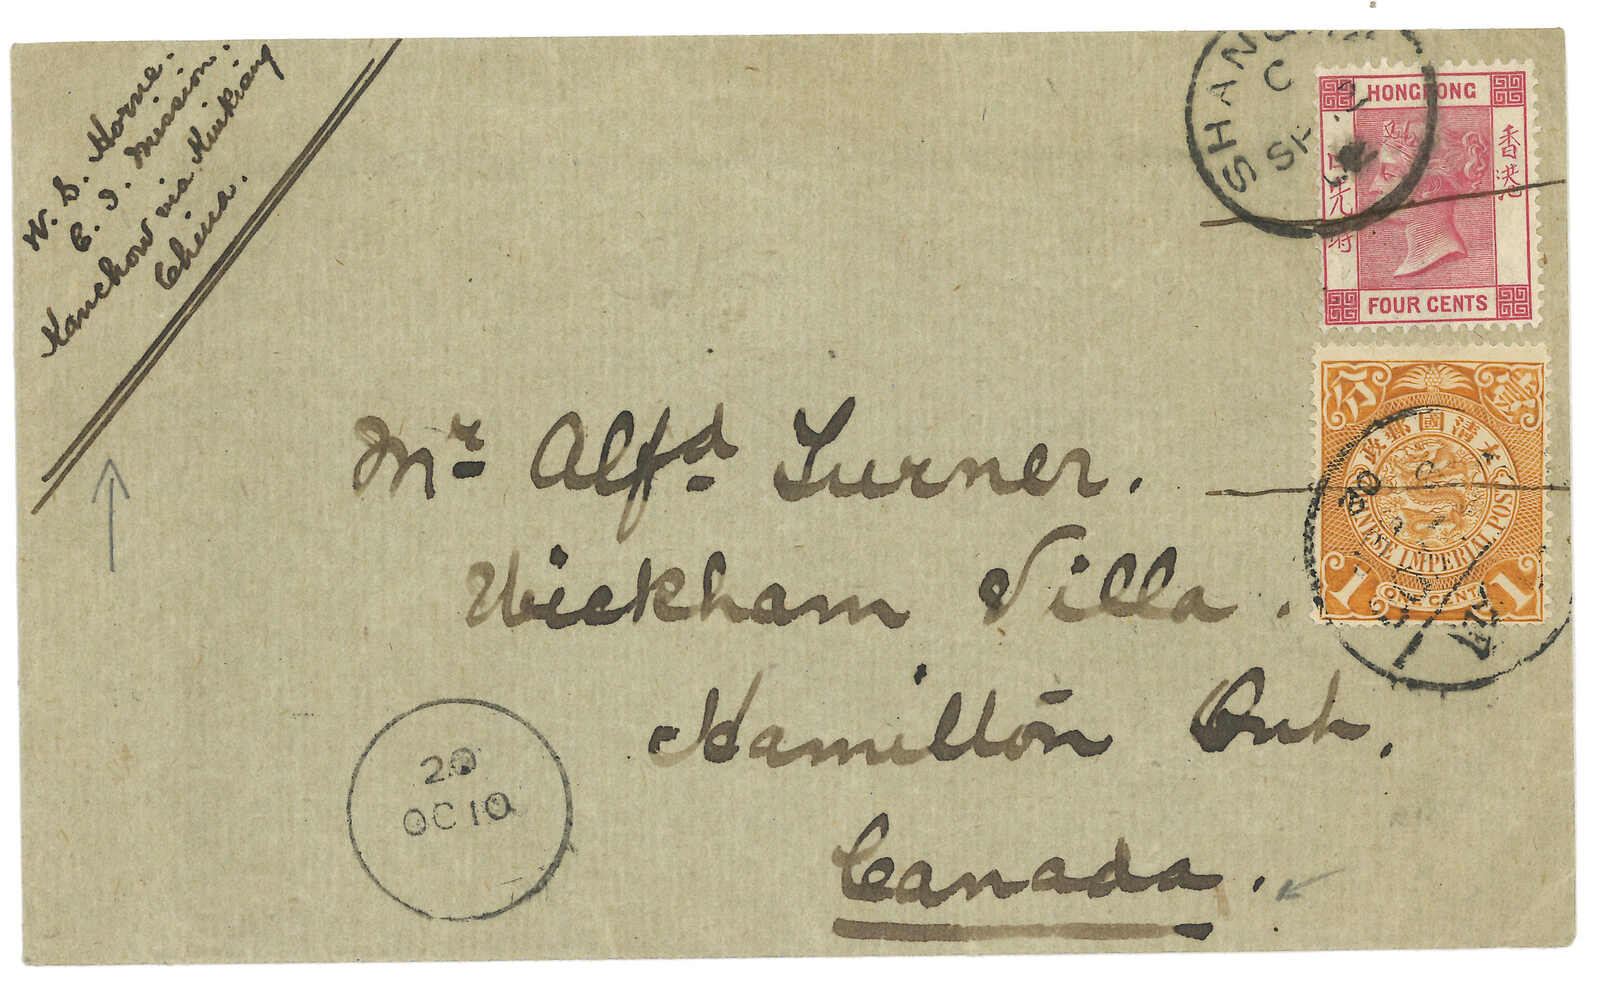 W. S. Horne.
C. I. Mission.
Kanchow via Kiukiang
China.
SHANG
C
HONGKONG
香港
FOUR CENTS
大清國郵政
CHINESE IMPERIAL POST
1 ONE CENT 1
Mr. Alfd. Turner.
Wickham Villa.
Hamilton Ont.
Canada.
20
OC 10